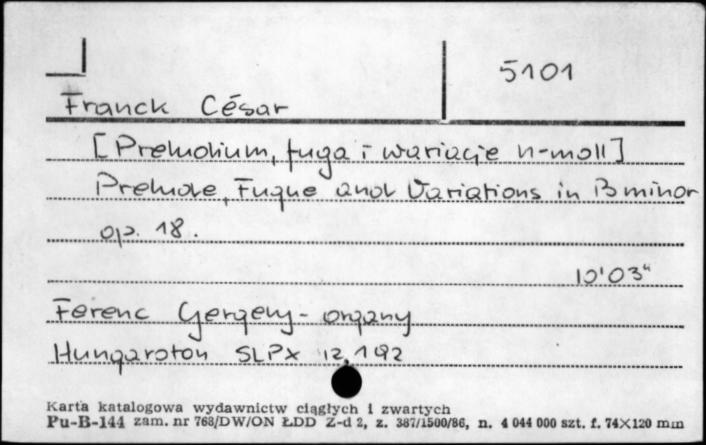 5101
Franck César
[Preludium, fuga i wariacje h-moll]
Prelude, Fugue and Variations in B minor
op. 18.
10'03"
Ferenc Gergely - organy
Hungaroton SLPX 12 192
Karta katalogowa wydawnictw ciągłych i zwartych
Pu-B-144 zam. nr 768/DW/ON ŁDD Z-d 2, z. 387/1500/86, n. 4 044 000 szt. f. 74×120 mm